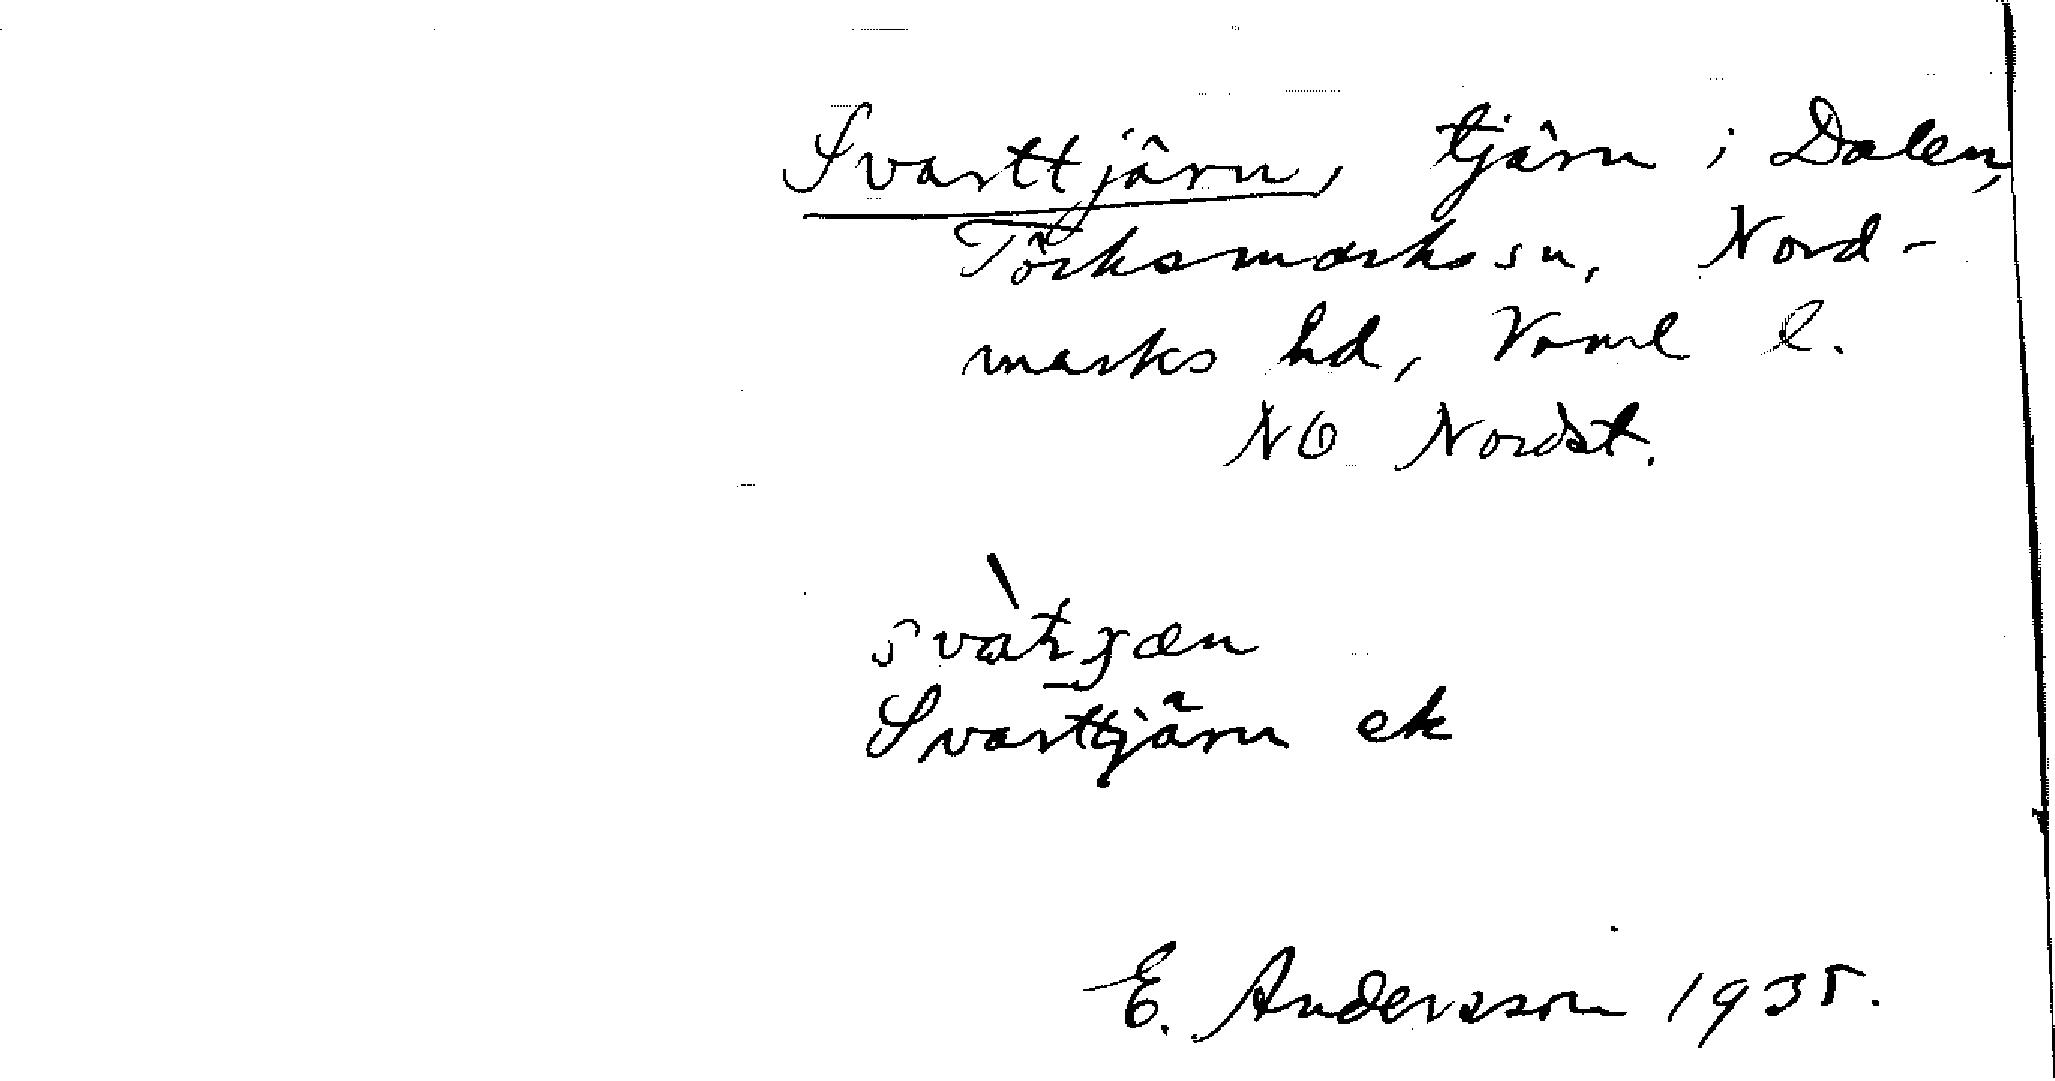 Svarttjärn, tjärn i Dalen,
Töcksmarks sn, Nord-
marks hd, Vrml l.
NO Nordst.
Svarttjärn ek
E. Andersson 1935.